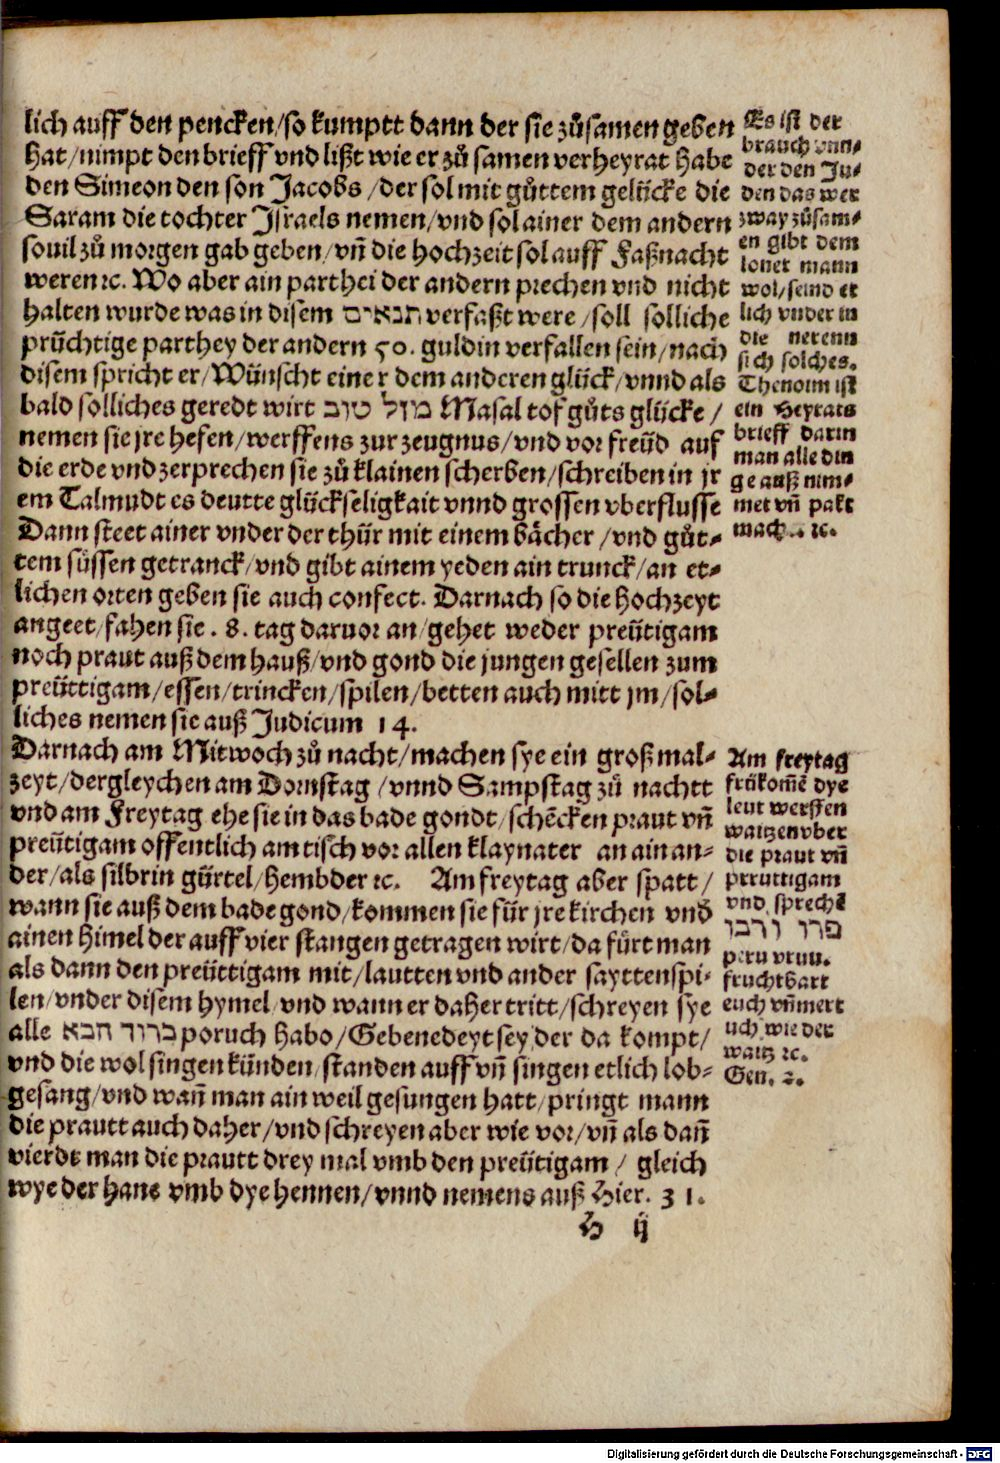 lich auff den pencken/so kumptt dann der sie zůsamen geben
hat/nimpt den brieff vnd lißt wie er zů samen verheyrat habe
den Simeon den son Jacobs/der sol mit gůttem gelücke die
Saram die tochter Jsraels nemen/vnd sol ainer dem andern
souil zů morgen gab geben/vñ die hochzeit sol auff Faßnacht
weren ꝛc. Wo aber ain parthei der andern prechen vnd nicht
halten wurde was in disem תנאים verfaßt were/soll solliche
prüchtige parthey der andern 50. guldin verfallen sein/nach
disem spricht er/Wünscht einer dem anderen glück/vnnd als
bald solliches geredt wirt מזל טוב Masal tof gůts glücke/
nemen sie jre hefen/werffens zur zeugnus/vnd vor freüd auf
die erde vnd zerprechen sie zů klainen scherben/schreiben in jr
em Talmudt es deutte glückseligkait vnnd grossen vberflusse
Dann steet ainer vnder der thür mit einem bächer/vnd gůt-
tem süssen getranck/vnd gibt ainem yeden ain trunck/an et-
lichen orten geben sie auch confect. Darnach so die hochzeyt
angeet/fahen sie .8. tag daruor an/gehet weder preütigam
noch praut auß dem hauß/vnd gond die jungen gesellen zum
preüttigam/essen/trincken/spilen/betten auch mitt jm/sol-
liches nemen sie auß Judicum 14.
Darnach am Mitwoch zů nacht/machen sye ein groß mal-
zeyt/dergleychen am Dornstag/vnnd Sampstag zů nachtt
vnd am Freytag ehe sie in das bade gondt/schēcken praut vñ
preütigam offentlich am tisch vor allen klaynater an ainan-
der/als silbrin gürtel/hembder ꝛc. Am freytag aber spatt/
wann sie auß dem bade gond/kommen sie für jre kirchen vnd
ainen himel der auff vier stangen getragen wirt/da fürt man
als dann den preüttigam mit/lautten vnd ander sayttenspi-
len/vnder disem hymel/vnd wann er daher tritt/schreyen sye
alle ברוד הבא poruch habo/Gebenedeyt sey der da kompt/
vnd die wol singen künden/standen auff vñ singen etlich lob-
gesang/vnd wañ man ain weil gesungen hatt/pringt mann
die prautt auch daher/vnd schreyen aber wie vor/vñ als dañ
vierdt man die prautt drey mal vmb den preütigam/ gleich
wye der hane vmb dye hennen/vnnd nemens auß Hier. 31.
H ij
Es ist der
brauch vnn-
der den Ju-
den das wer
zway zůsam-
en gibt dem
lonet mann
wol/seind et
lich vnder in
die nerenn
sich solches.
Thenoim ist
ein Heyrats
brieff darin
man alle din
ge auß nim-
met vñ pakt
mach.. ꝛc.
Am freytag
frůkom̄ē dye
leut werffen
waitzen vber
die praut vñ
preuttigam
vnd sprechē
פרו ורבו
peru vruu.
fruchtbart
euch vñ mert
uch wie der
waitz ꝛc.
Gen. 2.
Digitalisierung gefördert durch die Deutsche Forschungsgemeinschaft - DFG